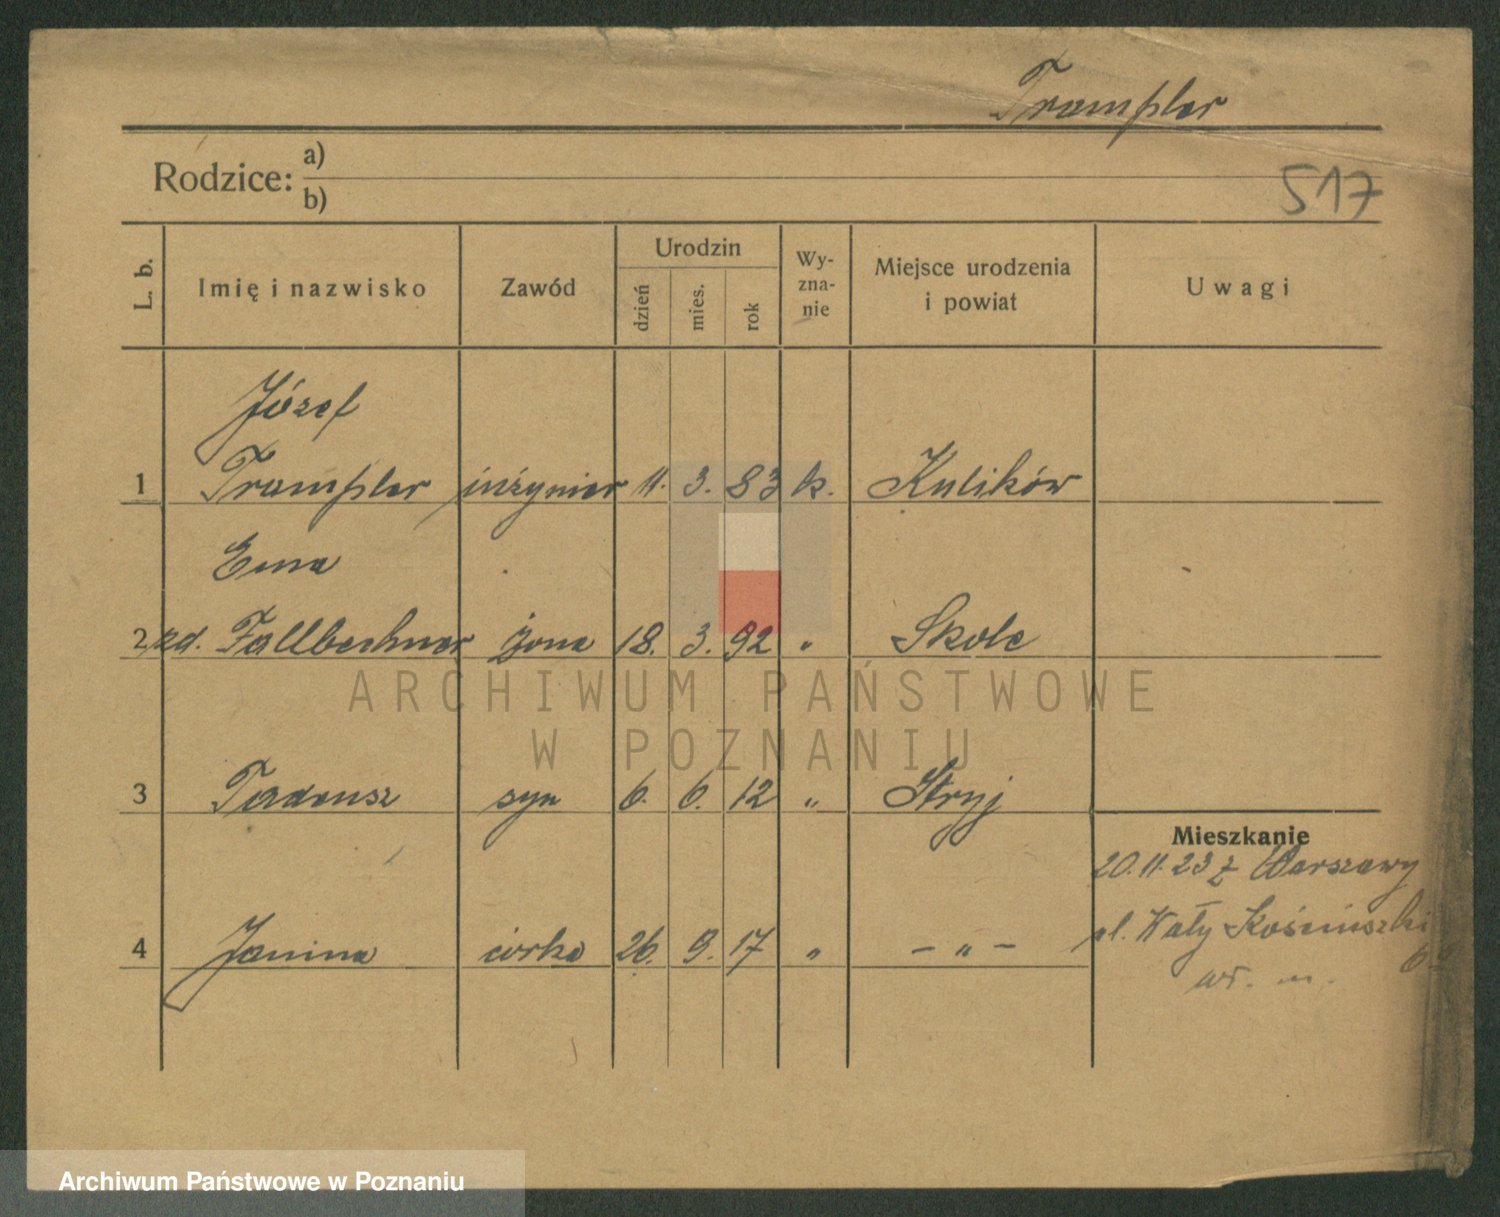 Trampler
Rodzice: a)
b)
517
L. b. Imię i nazwisko Zawód Urodzin dzień mies. rok Wy-zna-nie Miejsce urodzenia i powiat Uwagi
Józef
1 Trampler inżynier 11. 3. 83 k. Kulików
Ema
2 zd. Fallbechner żona 18. 3. 92 " Skole
ARCHIWUM PAŃSTWOWE
W POZNANIU
3 Tadeusz syn 6. 6. 12 " Stryj
Mieszkanie
20.11.23 z Warszawy
ul. Wały Kościuszki
4 Janina córka 26. 9. 17 " – " –
6
Archiwum Państwowe w Poznaniu